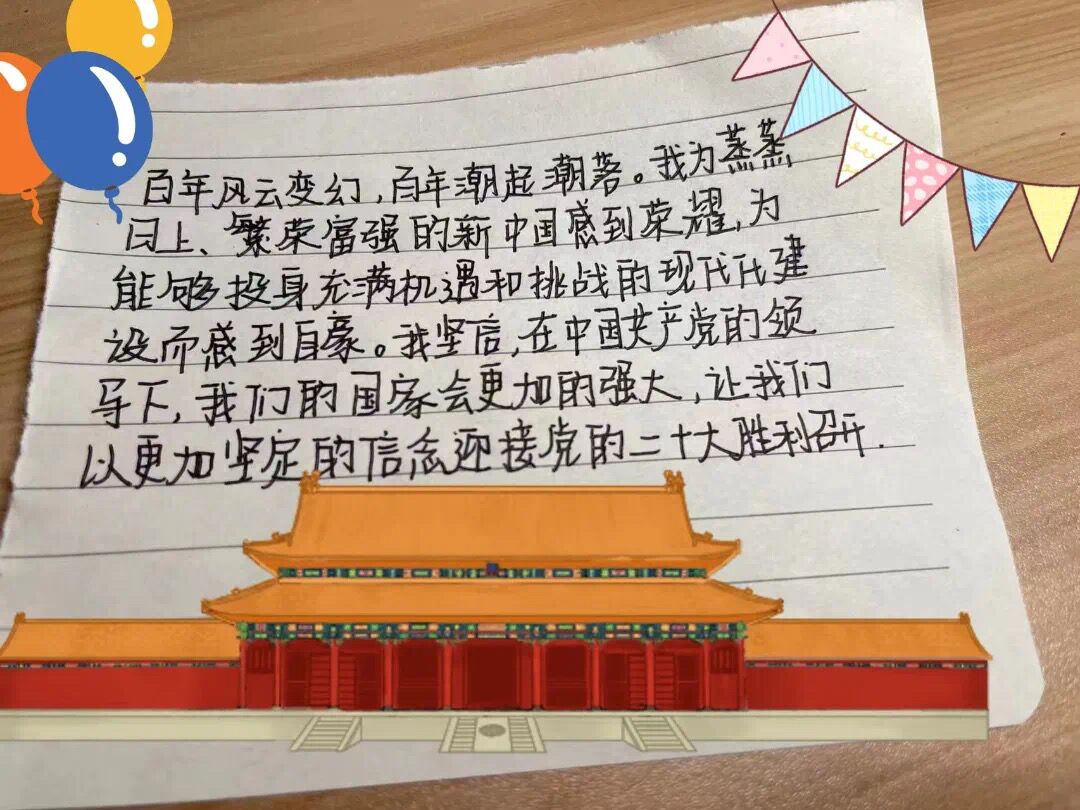 百年风云变幻,百年潮起潮落。我为蒸蒸
日上、繁荣富强的新中国感到荣耀,为
能够投身充满机遇和挑战的现代代建
设而感到自豪。我坚信,在中国共产党的领
导下,我们的国家会更加的强大,让我们
以更加坚定的信念迎接党的二十大胜利召开.